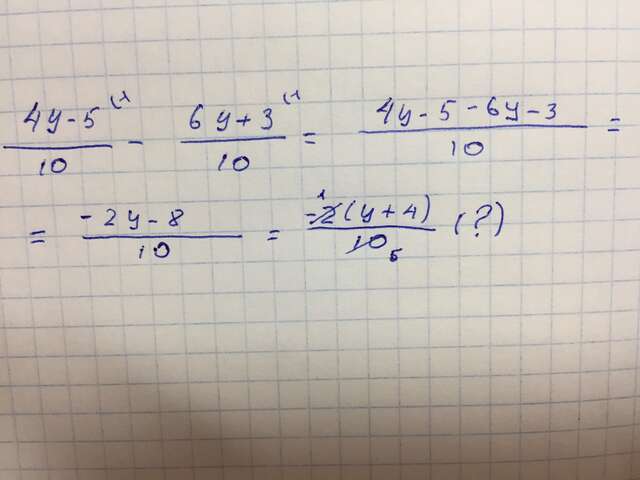 (4y-5)/10 (1 - (6y+3)/10 (1 = (4y-5-6y-3)/10 =
= (-2y-8)/10 = (-2(y+4))/10 1 5 (?)